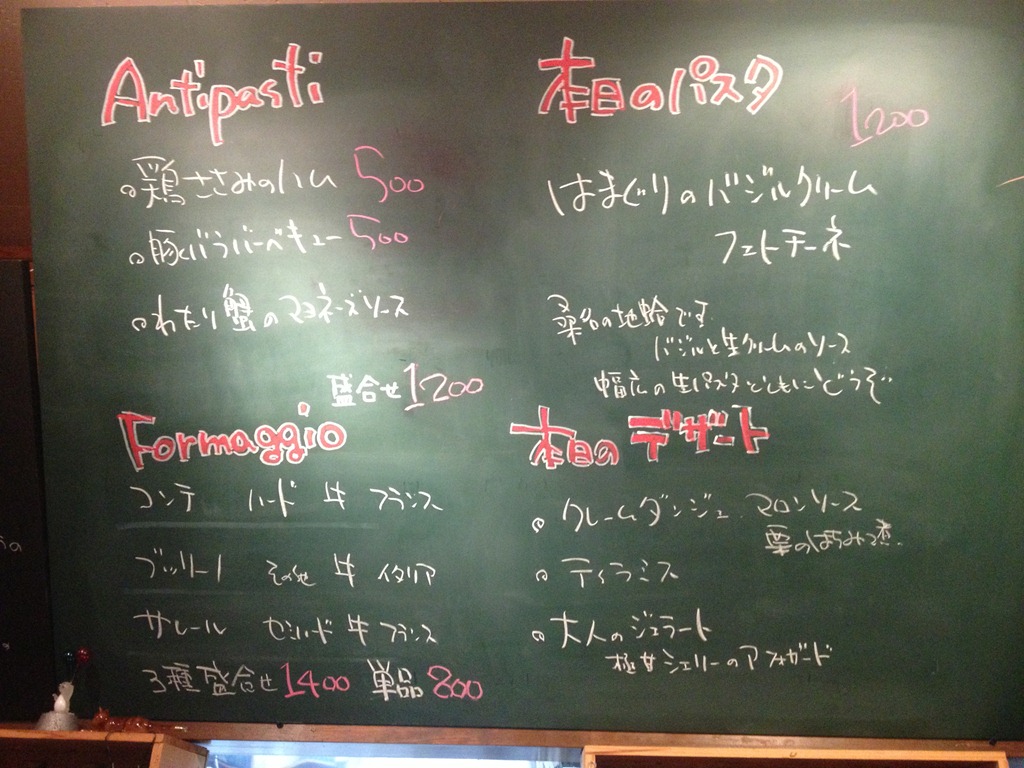 Antipasti
鶏ささみのハム 500
豚バラバーベキュー 500
わたり蟹のマヨネーズソース
盛合せ 1200
Formaggio
コンテ ハード 牛 フランス
ブッリーノ その他 牛 イタリア
サレール セミハード 牛 フランス
3種盛合せ 1400 単品 800
本日のパスタ 1200
はまぐりのバジルクリーム
フェトチーネ
桑名の地蛤です
バジルと生クリームのソース
幅広の生パスタとともにどうぞ
本日のデザート
クレームダンジュ マロンソース
栗のはちみつ煮
ティラミス
大人のジェラート
極甘シェリーのアフォガード